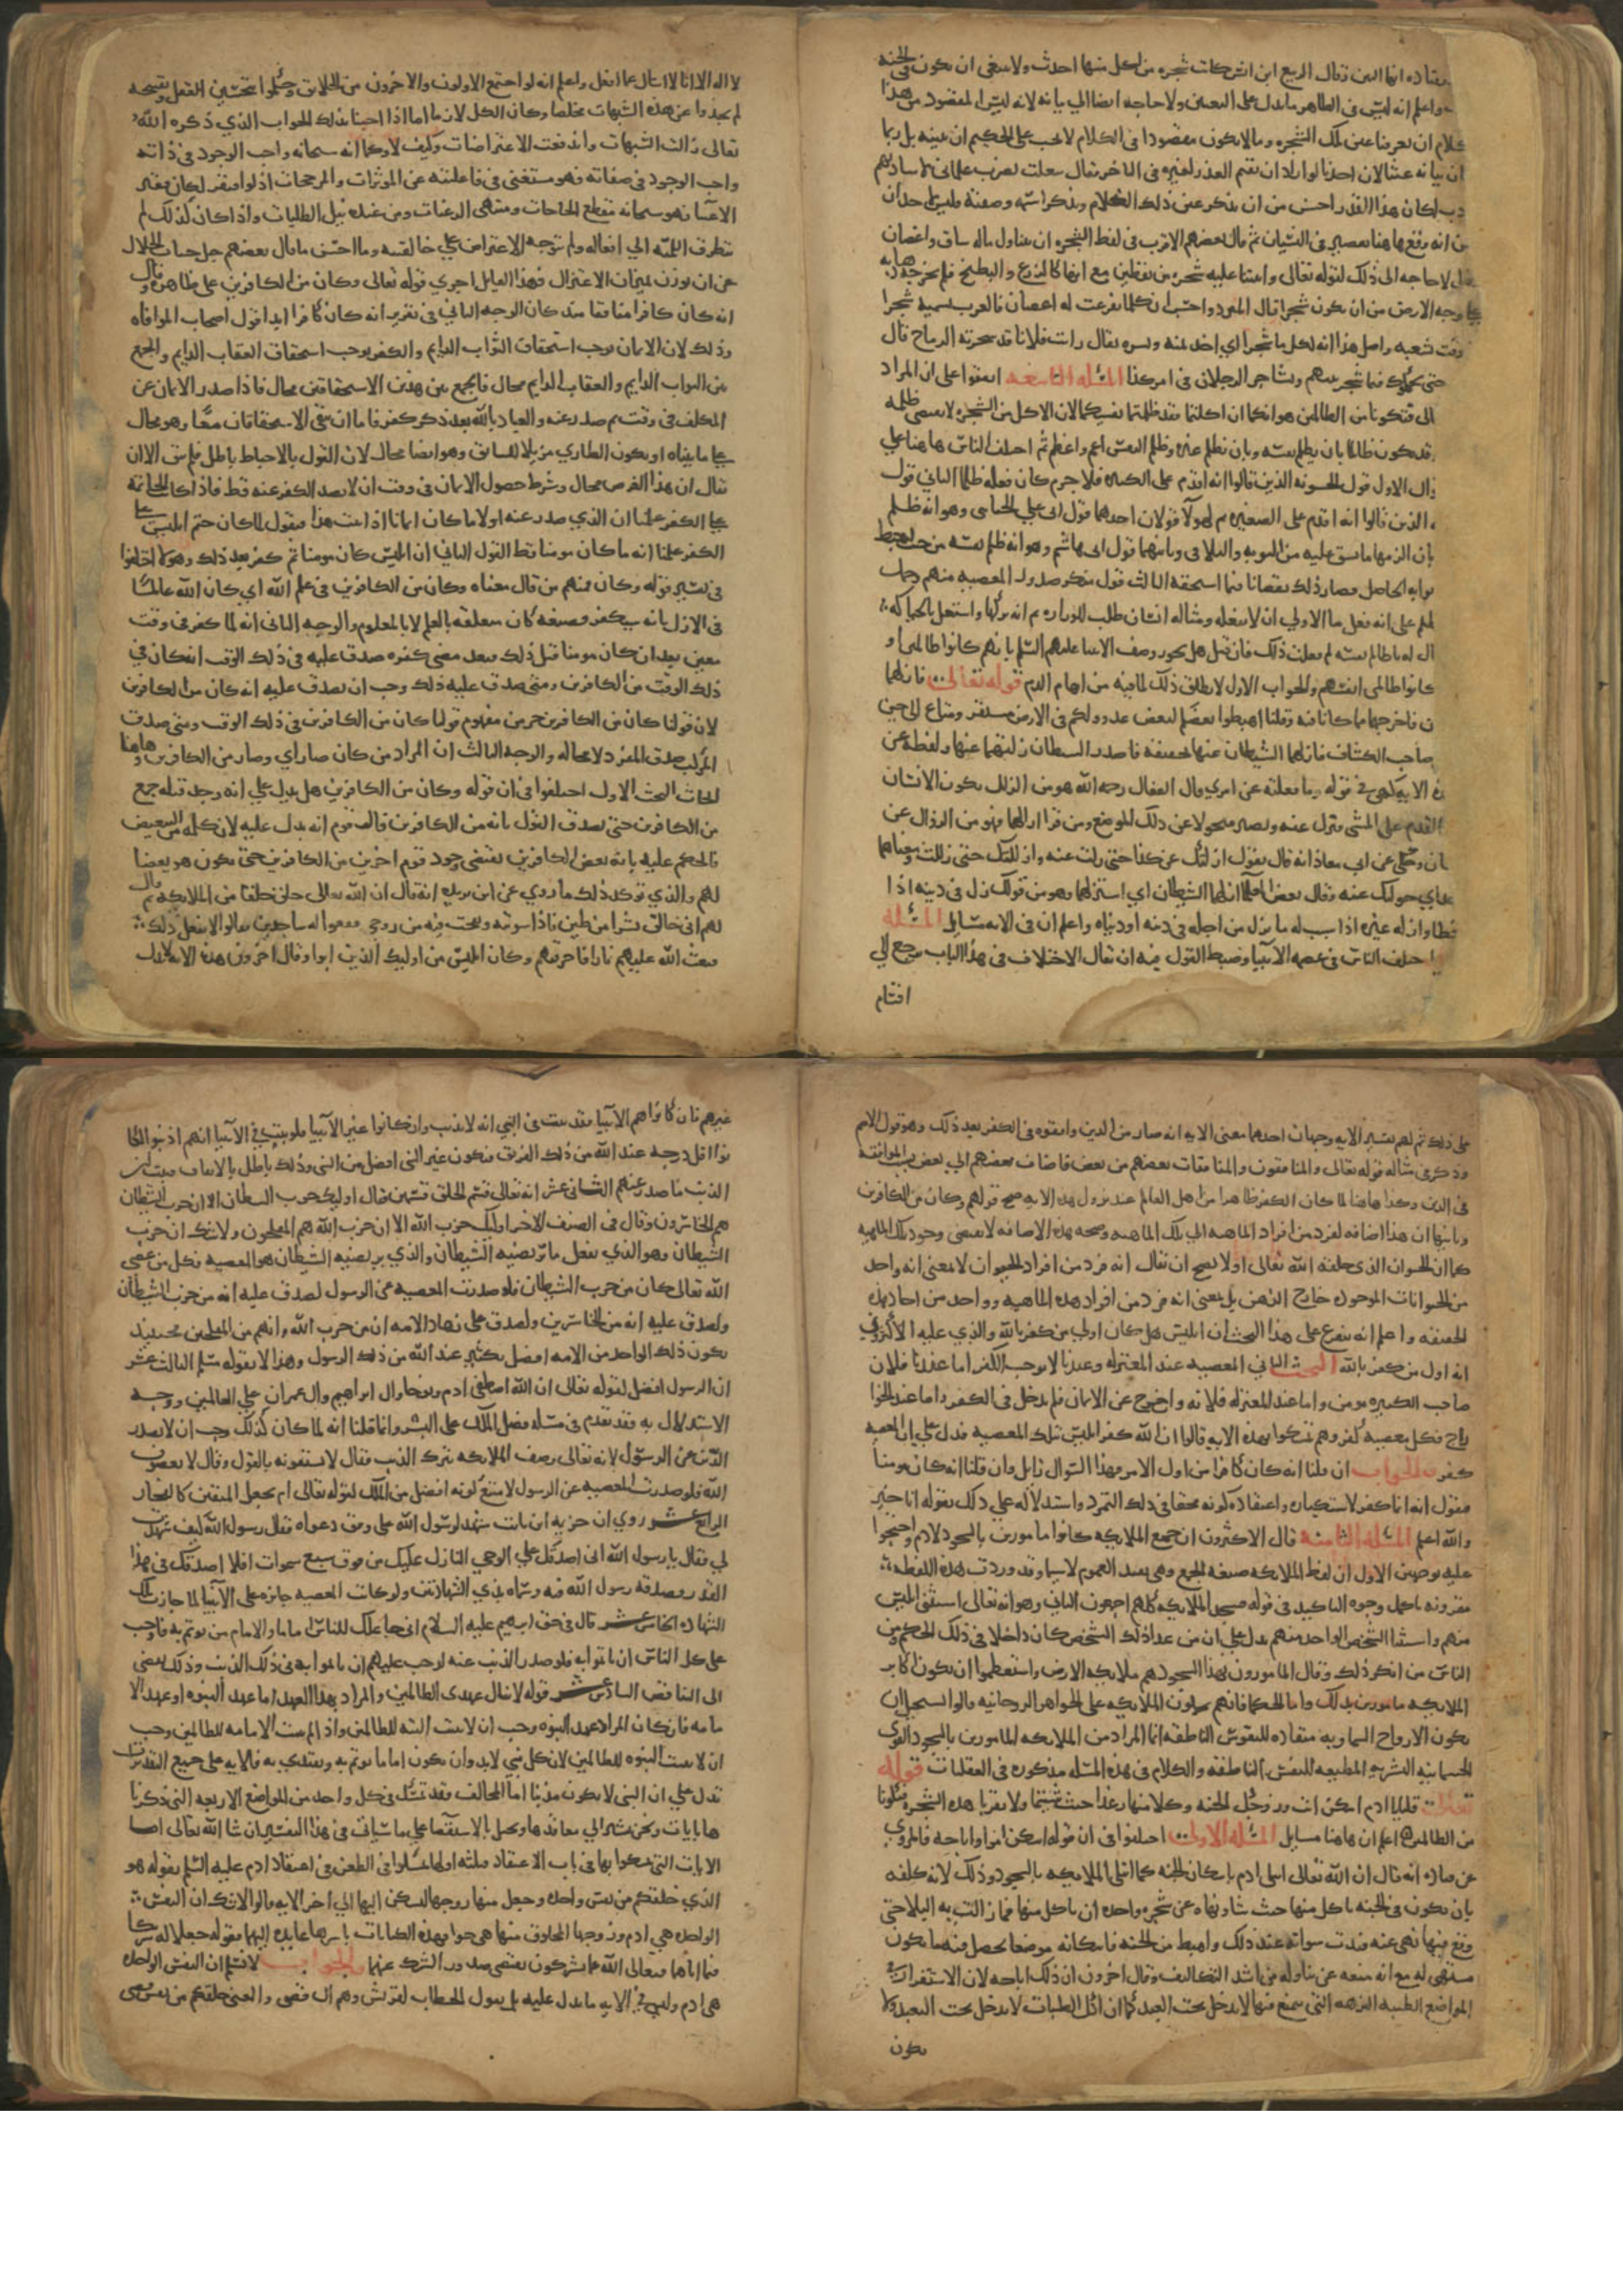 متقاده انها التين وقال الربيع ابن انس كانت شجره من اكل منها احدث ولا ينبغي ان يكون في الجنة
واعلم انه ليس في الظاهر ما يدل على التعيين ولا حاجه ايضا الي بيانه لانه ليس المقصود من هذا
الكلام ان يعرفنا عين تلك الشجره وما لا يكون مقصودا في الكلام لا يجب على الحكيم ان يبينه بل ربما
ان بيانه عبثا لان احدنا لو اراد ان يقيم العذر لغيره في التاخر فقال شغلت بضرب غلماني لاساتهم
دب لكان هذا القدر احسن من ان يذكر عين ذلك الغلام ويذكر اسمه وصفته فليس لاحد ان
ن انه وقع هاهنا تقصير في البيان ثم قال بعضهم الاقرب في لفظ الشجره ان يتناول ماله ساق واغصان
قيل لا حاجه الى ذلك لقوله تعالى وانبتنا عليه شجره من يقطين مع انها كالزرع والبطيخ فلم يخرجه ذهابه
على وجه الارض من ان يكون شجرا قال المبرد واحسب ان كلما تفرعت له اغصان فالعرب تسميه شجرا
وقت تشعبه واصل هذا انه لكل ما شجر اي اخذ يمنه ويسره يقال رايت فلانا قد شجرته الرماح قال
حتى يحكموك فيما شجر بينهم وتشاجر الرجلان في امر كذا المسئله التاسعه اتفقوا على ان المراد
الى فتكونا من الظالمين هو انكما ان اكلتما فقد ظلمتما نفسيكما لان الاكل من الشجره لا يقتضي ظلمه
قد يكون ظالما بان يظلم نفسه وبان يظلم غيره وظلم النفس اعم واعظم ثم اختلف الناس هاهنا على
وال الاول قول الحشويه الذين قالوا انه اقدم على الكبيره فلا جرم كان فعله ظلما الثاني قول
الذين قالوا انه اقدم على الصغيره ثم لهولا قولان احدهما قول ابى علي الجبائي وهو انه ظلم
بان الزمها ما يشق عليه من التوبه والتلافي وثانيهما قول ابى هاشم وهو انه ظلم نفسه من حيث احبط
ثوابه الحاصل فصار ذلك نقصانا فيما استحقه الثالث قول من ينكر صدور المعصيه منهم وحمل
لظلم على انه فعل ما الاولي ان لا يفعله ومثاله انسان طلب الوزاره ثم انه تركها واشتغل بالحياكه
ال له يا ظالم نفسه لم فعلت ذلك فان قيل هل يجوز وصف الانبيا عليهم السلم بانهم كانوا ظالمين او
كانوا ظالمى انفسهم والجواب الاولى لا يطلق ذلك لما فيه من ايهام الذم قوله تعالى فازلهما
ن فاخرجهما مما كانا فيه وقلنا اهبطوا بعضكم لبعض عدو ولكم في الارض مستقر ومتاع الي حين
صاحب الكشاف فازلهما الشيطان عنها تحقيقه فاصدر الشيطان زلتهما عنها ولفظة عن
ه الايه كهي في قوله وما فعلته عن امري وقال القفال رحمه الله هو من الزلل يكون الانسان
القدم على المشى فتزل عنه ويصير متحولا عن ذلك الموضع ومن قرا ازالهما فهو من الزوال عن
ان وحكى عن ابى معاذ انه قال يقول ازلتك عن كذا حتى زلت عنه وازللتك حتى زللت ومعناهما
حداي حولتك عنه وقال بعض العلما ازلهما الشيطان اي استزلهما وهو من قولك زل في دينه اذا
خطا وازله غيره اذا سبب له ما يزل من اجله في دينه او دنياه واعلم ان في الايه مسايل المسئلة
اختلف الناس في عصمة الانبيا وضبط القول فيه ان يقال الاختلاف في هذا الباب يرجع الي
اقسام
لا اله الا انا لا اسال عما افعل واعلم انه لو اجتمع الاولون والاخرون من الخلايق وحكموا بتحسين العقل وتقبيحه
لم يجدوا عن هذه الشبهات مخلصا وكان الكل لازما اما اذا اجبنا بذلك الجواب الذي ذكره الله
تعالى زالت الشبهات واندفعت الاعتراضات وكيف لا وكما انه سبحانه واجب الوجود في ذاته
واجب الوجود في صفاته فهو مستغني في فاعليته عن الموثرات والمرجحات اذ لو افتقر لكان فقير
الاغنيا فهو سبحانه مقطع الحاجات ومنتهى الرغبات ومن عنده نيل الطلبات واذا كان كذلك لم
تتطرق اللميه الي افعاله ولم يتوجه الاعتراض علي خالقيته وما احسن ما قال بعضهم جل جناب الجلال
عن ان يوزن بميزان الاعتزال فهذا القايل اجري قوله تعالى وكان من الكافرين على ظاهره وقال
انه كان كافرا منافقا منذ كان الوجه الثاني في تقرير انه كان كافرا ابدا قول اصحاب الموافاه
وذلك لان الايمان يوجب استحقاق الثواب الدايم والكفر يوجب استحقاق العقاب الدايم والجمع
بين الثواب الدايم والعقاب الدايم محال فالجمع بين هذين الاستحقاقين محال فاذا صدر الايمان عن
المكلف في وقت ثم صدر عنه والعياذ بالله بعد ذلك كفر فاما ان يبقى الاستحقاقان معا وهو محال
على ما بيناه او يكون الطاري مزيلا للسابق وهو ايضا محال لان القول بالاحباط باطل فلم يبق الا ان
يقال ان هذا الفرض محال وشرط حصول الايمان في وقت ان لا يصدر الكفر عنه قط فاذا كانت الخاتمة
على الكفر علمنا ان الذي صدر عنه اولا ما كان ايمانا اذا ثبت هذا فنقول لما كان ختم ابليس على
الكفر علمنا انه ما كان مومنا قط القول الثاني ان ابليس كان مومنا ثم كفر بعد ذلك وهولا اختلفوا
في تفسير قوله وكان فمنهم من قال معناه وكان من الكافرين في علم الله اي كان الله عالما
في الازل بانه سيكفر فصيغه كان متعلقه بالعلم لا بالمعلوم والوجه الثانى انه لما كفر في وقت
معين بعد ان كان مومنا قبل ذلك فبعد مضي كفره صدق عليه في ذلك الوقت انه كان في
ذلك الوقت من الكافرين ومتى صدق عليه ذلك وجب ان يصدق عليه انه كان من الكافرين
لان قولنا كان من الكافرين جزء من مفهوم قولنا كان من الكافرين في ذلك الوقت ومتى صدق
المركب صدق المفرد لا محاله والوجه الثالث ان المراد من كان صار اي وصار من الكافرين وهاهنا
ابحاث البحث الاول اختلفوا في ان قوله وكان من الكافرين هل يدل علي انه وجد قبله جمع
من الكافرين حتى يصدق القول بانه من الكافرين قال قوم انه يدل عليه لان كلمه من للتبعيض
فالحكم عليه بانه بعض الكافرين يقتضي وجود قوم اخرين من الكافرين حتى يكون هو بعضا
لهم والذي يوكد ذلك ما روي عن ابن بريده انه قال ان الله تعالى خلق خلقا من الملايكه ثم قال
لهم اني خالق بشرا من طين فاذا سويته ونفخت فيه من روحي فقعوا له ساجدين فقالوا لا نفعل ذلك
فبعث الله عليهم نارا فاحرقتهم وكان ابليس من اوليك الذين ابوا وقال اخرون هذه الايه لا تدل
على ذلك ثم لهم في تفسير الايه وجهان احدهما معنى الايه انه صار من الذين وافقوه في الكفر بعد ذلك وهو قول الاصم
وذكر في مثاله قوله تعالى والمنافقون والمنافقات بعضهم من بعض فاضاف بعضهم الي بعض بسبب الموافقه
في الدين وكذا هاهنا لما كان الكفر ظاهرا من اهل العالم عند نزول هذه الايه صح قولهم وكان من الكافرين
وثانيها ان هذا اضافه لفرد من افراد الماهيه الي تلك الماهيه وصحه هذه الاضافه لا تقتضي وجود تلك الماهيه
كما ان الحيوان الذى خلقه الله تعالى اولا يصح ان يقال انه فرد من افراد الحيوان لا بمعنى انه واحد
من الحيوانات الموجوده خارج الذهن بل بمعنى انه فرد من افراد هذه الماهيه وواحد من احاد هذه
الحقيقه واعلم انه يتفرع على هذا البحث ان ابليس هل كان اولي من كفر بالله والذي عليه الاكثرون
انه اول من كفر بالله البحث الثاني المعصيه عند المعتزله وعندنا لا توجب الكفر اما عندنا فلان
صاحب الكبيره مومن واما عند المعتزله فلانه وان خرج عن الايمان فلم يدخل في الكفر واما عند الخوا
رج فكل معصيه كفر وهم تمسكوا بهذه الايه قالوا ان الله كفر ابليس بتلك المعصيه فدل على ان المعصيه
كفر والجواب ان قلنا انه كان كافرا من اول الامر فهذا السوال زايل وان قلنا انه كان مومنا
فنقول انه انما كفر لاستكباره واعتقاده كونه محقا في ذلك التمرد واستدلاله علي ذلك بقوله انا خير
والله اعلم المسئله الثامنه قال الاكثرون ان جميع الملايكه كانوا مامورين بالسجود لادم واحتجوا
عليه بوجهين الاول ان لفظ الملايكه صيغه الجمع وهي تفيد العموم لا سيما وقد وردت هذه اللفظه
مقرونه باكمل وجوه التاكيد في قوله فسجد الملايكه كلهم اجمعون الثاني وهو انه تعالى استثنى ابليس
منهم واستثنا الشخص الواحد منهم يدل علي ان من عدا ذلك الشخص كان داخلا في ذلك الحكم ومن
الناس من انكر ذلك وقال المامورون بهذا السجود هم ملايكه الارض واستعظموا ان يكون اكابر
الملايكه مامورين بذلك واما الحكما فانهم يحملون الملايكه على الجواهر الروحانيه وقالوا يستحيل ان
يكون الارواح السماويه منقاده للنفوس الناطقه انما المراد من الملايكه المامورين بالسجود القوى
الجسمانيه البشريه المطيعه للنفس الناطقه والكلام في هذه المسئله مذكور في العقليات قوله
تعالى وقلنا يا ادم اسكن انت وزوجك الجنة وكلا منها رغدا حيث شيتما ولا تقربا هذه الشجره فتكونا
من الظالمين اعلم ان هاهنا مسايل المسئله الاولى اختلفوا في ان قوله اسكن امر او اباحه فالمروي
عن قتاده انه قال ان الله تعالى ابتلى ادم باسكان الجنة كما ابتلى الملايكه بالسجود وذلك لانه كلفه
بان يكون في الجنة ياكل منها حيث شا ونهاه عن شجره واحده ان ياكل منها فما زالت به البلايا حتى
وقع فيما نهى عنه فبدت سواته عند ذلك واهبط من الجنة فاسكانه موضعا يحصل فيه ما يكون
مشتهى له مع انه منعه عن تناوله من اشد التكاليف وقال اخرون ان ذلك اباحه لان الاستقرار في
المواضع الطيبه النزهه التي يتمتع فيها لا يدخل تحت التعبد كما ان اكل الطيبات لا يدخل تحت التعبد ولا
يكون
غيرهم فان كانوا هم الانبيا فقد ثبت في النبي انه لا يذنب وان كانوا غير الانبيا فلو ثبت في الانبيا انهم اذنبوا لكا
نوا اقل درجه عند الله من ذلك الفريق فيكون غير النبي افضل من النبي وذلك باطل بالاتفاق فثبت ان
الذنب ما صدر عنهم الثاني عشر انه تعالى قسم الخلق قسمين فقال اوليك حزب الشيطان الا ان حزب الشيطان
هم الخاسرون وقال في الصنف الاخر اوليك حزب الله الا ان حزب الله هم المفلحون ولا شك ان حزب
الشيطان هو الذي يفعل ما يرتضيه الشيطان والذي يرتضيه الشيطان هو المعصيه فكل من عصى
الله تعالى كان من حزب الشيطان فلو صدرت المعصيه عن الرسول لصدق عليه انه من حزب الشيطان
ولصدق عليه انه من الخاسرين ولصدق على زهاد الامه انهم من حزب الله وانهم من المفلحين فحينيذ
يكون ذلك الواحد من الامه افضل بكثير عند الله من ذلك الرسول وهذا لا يقوله مسلم الثالث عشر
ان الرسول افضل لقوله تعالى ان الله اصطفى ادم ونوحا وال ابراهيم وال عمران علي العالمين ووجه
الاستدلال به قد تقدم في مسله فضل الملك على البشر وانما قلنا انه لما كان كذلك وجب ان لا يصدر
الذنب عن الرسول لانه تعالى وصف الملايكه بترك الذنب فقال لا يسبقونه بالقول وقال لا يعصون
الله فلو صدرت المعصيه عن الرسول لامتنع كونه افضل من الملك لقوله تعالى ام نجعل المتقين كالفجار
الرابع عشر روي ان خزيمه ابن ثابت شهد لرسول الله على وفق دعواه فقال رسول الله كيف شهدت
لي فقال يا رسول الله اني اصدقك علي الوحي النازل عليك من فوق سبع سموات افلا اصدقك في هذا
القدر فصدقه رسول الله فيه وسماه بذي الشهادتين ولو كانت المعصيه جايزه على الانبيا لما جازت تلك
الشهاده الخامس عشر قال في حق ابراهيم عليه السلام اني جاعلك للناس اماما والامام من يوتم به فاوجب
على كل الناس ان ياتموا به فلو صدر الذنب عنه لوجب عليهم ان ياتموا به في ذلك الذنب وذلك يفضى
الى التناقض السادس عشر قوله لا ينال عهدى الظالمين والمراد بهذا العهد اما عهد النبوه او عهد الا
مامه فان كان المراد عهد النبوه وجب ان لا تثبت النبوة للظالمين واذا لم يثبت الامامه للظالمين وجب
ان لا تثبت النبوه للظالمين لان كل نبي لا بد وان يكون اماما يوتم به ويقتدى به فالايه على جميع التقديرات
تدل علي ان النبى لا يكون مذنبا اما المخالف فقد تمسك في كل واحد من المواضع الاربعه التي ذكرنا
ها بايات ونحن نشير الي معاقدها ونحيل بالاستقصا علي ما سياتي في هذا التفسير ان شا الله تعالى اما
الايات التى تمسكوا بها في باب الاعتقاد فثلثه اولها تمسكوا في الطعن في اعتقاد ادم عليه السلم بقوله هو
الذي خلقكم من نفس واحده وجعل منها زوجها ليسكن اليها الي اخر الايه قالوا لا شك ان النفس
الواحده هي ادم وزوجها المخلوق منها هى حوا فهذه الكنايات باسرها عايده اليهما فقوله جعلا له شركا
فيما اتاهما فتعالى الله عما يشركون يقتضي صدور الشرك عنهما والجواب لا نسلم ان النفس الواحده
هى ادم وليس في الايه ما يدل عليه بل نقول الخطاب لقريش وهم ال قصي والمعنى خلقكم من نفس قصى